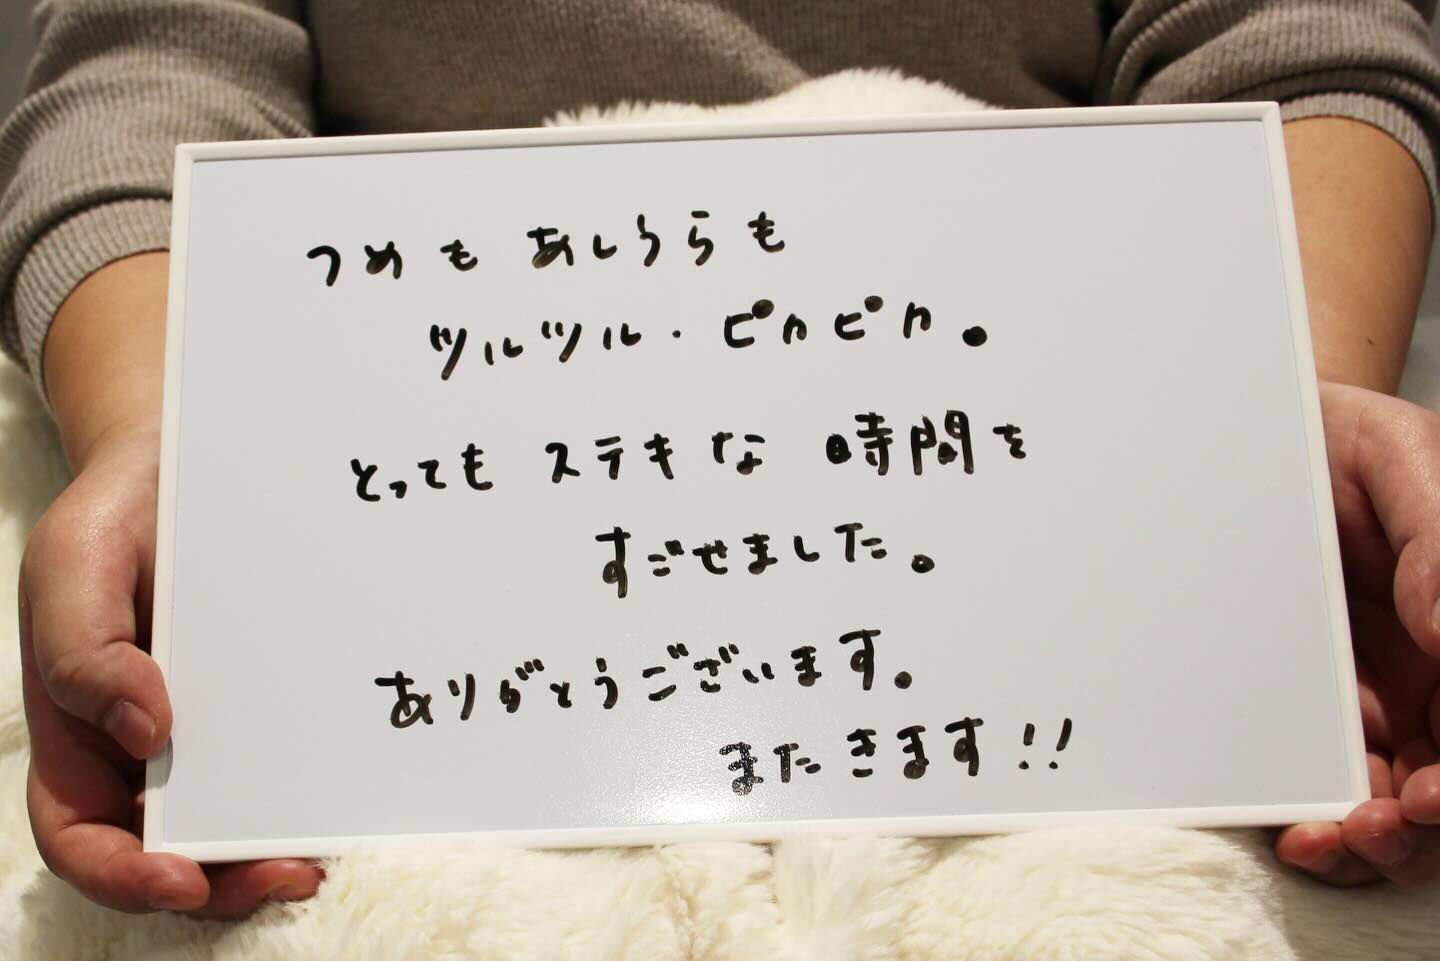 つめも あしうらも
ツルツル・ピカピカ。
とっても ステキな 時間を
すごせました。
ありがとうございます。
またきます!!